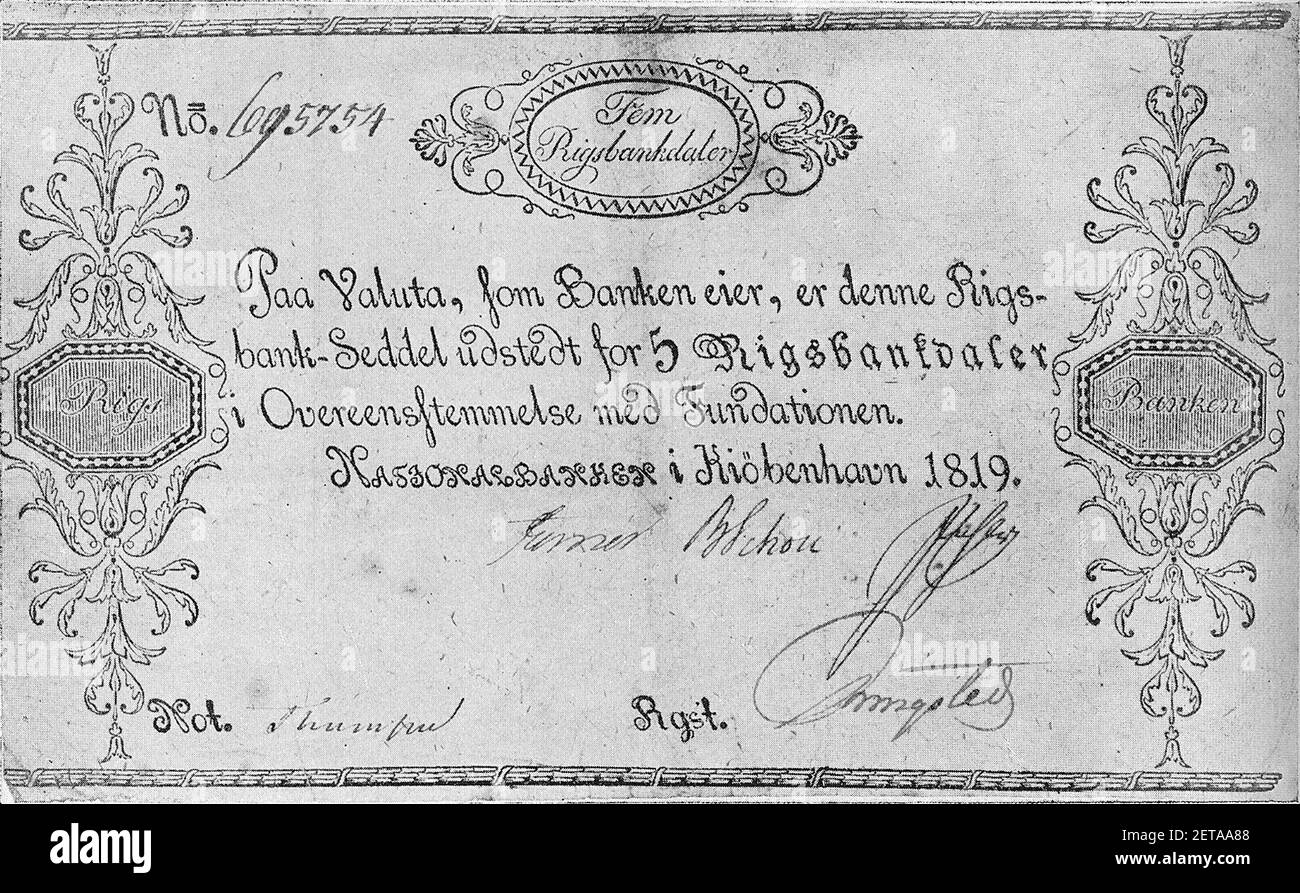 No. 695754
Fem
Rigsbankdaler
Paa Valuta, ſom Banken eier, er denne Rigs-
bank-Seddel udstedt for 5 Rigsbankdaler
i Overeensſtemmelse med Fundationen.
NATIONALBANKEN i Kiöbenhavn 1819.
Rigs
Banken
BSchou
Not.
Rgst.
alamy
Image ID: 2ETAA88
www.alamy.com